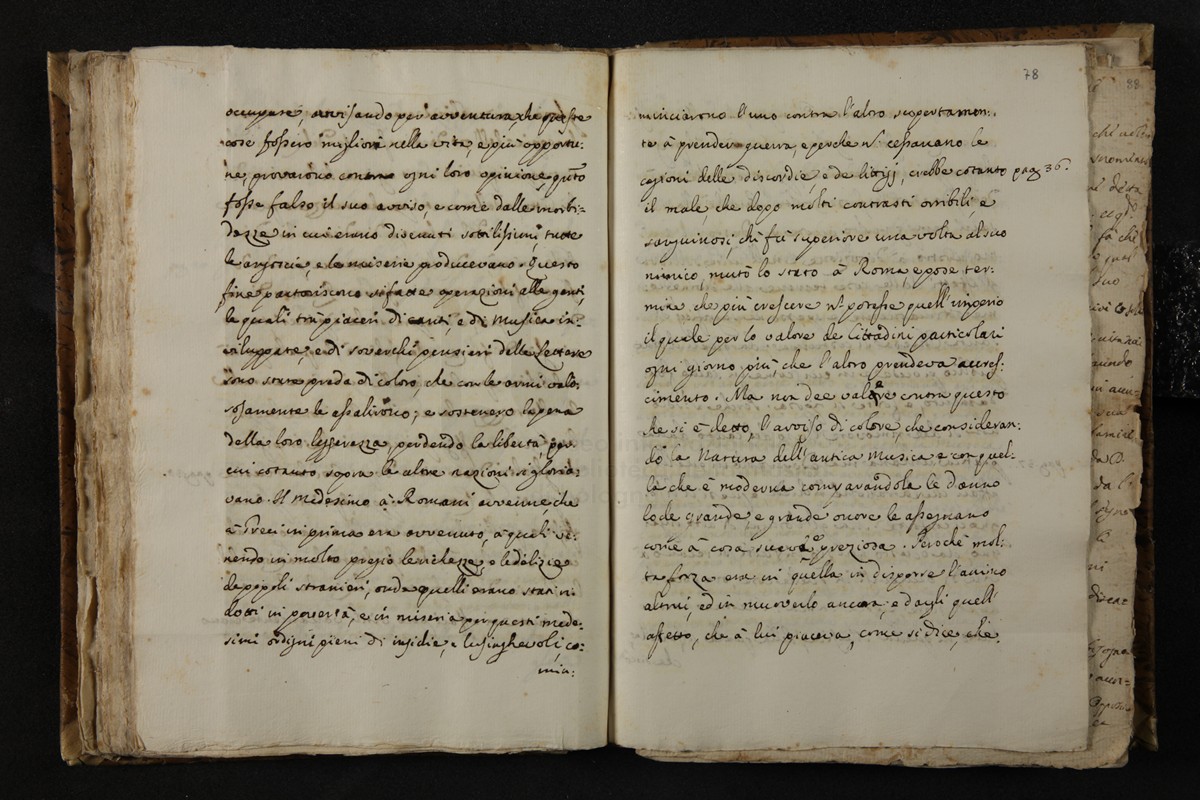 occupare, avvisando per avventura, che queste
cose fossero migliori nella vita, e più opportu-
ne, provarono contro ogni loro opinione, qto
fosse falso il suo avviso, e come dalle morbi-
dezze in cui erano divenuti sottilissimi tutte
le angoscie e le miserie producevano. Questo
fine partoriscono sifatte operazioni alle genti,
le quali tra piaceri di canti e di Musica in-
viluppate, e di soverchi pensieri delle lettere
sono state preda di coloro, che con le armi valo-
rosamente le assalirono; e sostenero la pena
della loro leggerezza, perdendo la libertà per
cui cotanto sopra le altre nazioni si gloria-
vano. Il medesimo à Romani avvenne che
à Greci in prima era avvenuto, à quali ve-
nendo in molto pregio le richezze, e le delizie
de popoli stranieri, onde quelli erano stati ri-
dotti in povertà, e in miseria per questi mede-
simi ordigni pieni di insidie, e lusinghevoli, co-
min:
78
minciarono l'uno contra l'altro scopertamen-
te à prender guerra, e perche nō cessavano le
cagioni delle discordie, e de litigij, crebbe cotanto pag 36.
il male, che dopo molti contrasti orribili, e
sanguinosi, chi fù superiore una volta al suo
nimico, mutò lo stato à Roma, e pose ter-
mine che più crescere nō potesse quell'imperio
il quale per lo valore de Cittadini particolari
ogni giorno più, che l'altro prendeva accres-
cimento. Ma non dee valere contra questo
che si è detto, l'avviso di coloro, che consideran-
do la Natura dell'antica Musica e con quel-
la che è moderna comparandola le danno
lode grande, e grande onore le assegnano
come à cosa preziosa. Peroché mol-
ta forza era in quella in disporre l'animo
altrui, ed in muoverlo ancora, e dargli quell'
affetto, che à lui piaceva, come si dice, che
88